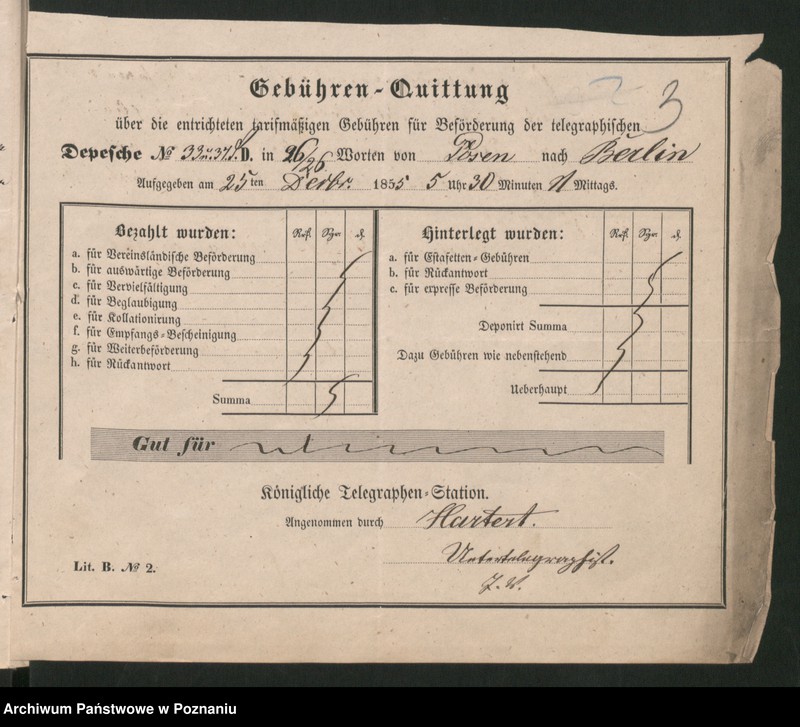 3
Gebühren-Quittung
über die entrichteten tarifmäßigen Gebühren für Beförderung der telegraphischen
Depesche № 33 u. 37 D. in 26/26 Worten von Posen nach Berlin
Aufgegeben am 25ten Decbr. 1855 5 Uhr 30 Minuten N Mittags.
Bezahlt wurden: Rtl. Sgr. d.
a. für Vereinsländische Beförderung
b. für auswärtige Beförderung
c. für Vervielfältigung
d. für Beglaubigung
e. für Kollationirung
f. für Empfangs-Bescheinigung
g. für Weiterbeförderung
h. für Rückantwort
Summa
Hinterlegt wurden: Rtl. Sgr. d.
a. für Estafetten-Gebühren
b. für Rückantwort
c. für expresse Beförderung
Deponirt Summa
Dazu Gebühren wie nebenstehend
Ueberhaupt
Gut für
Königliche Telegraphen-Station.
Angenommen durch Hartert.
Untertelegraphist.
Lit. B. № 2.
Archiwum Państwowe w Poznaniu